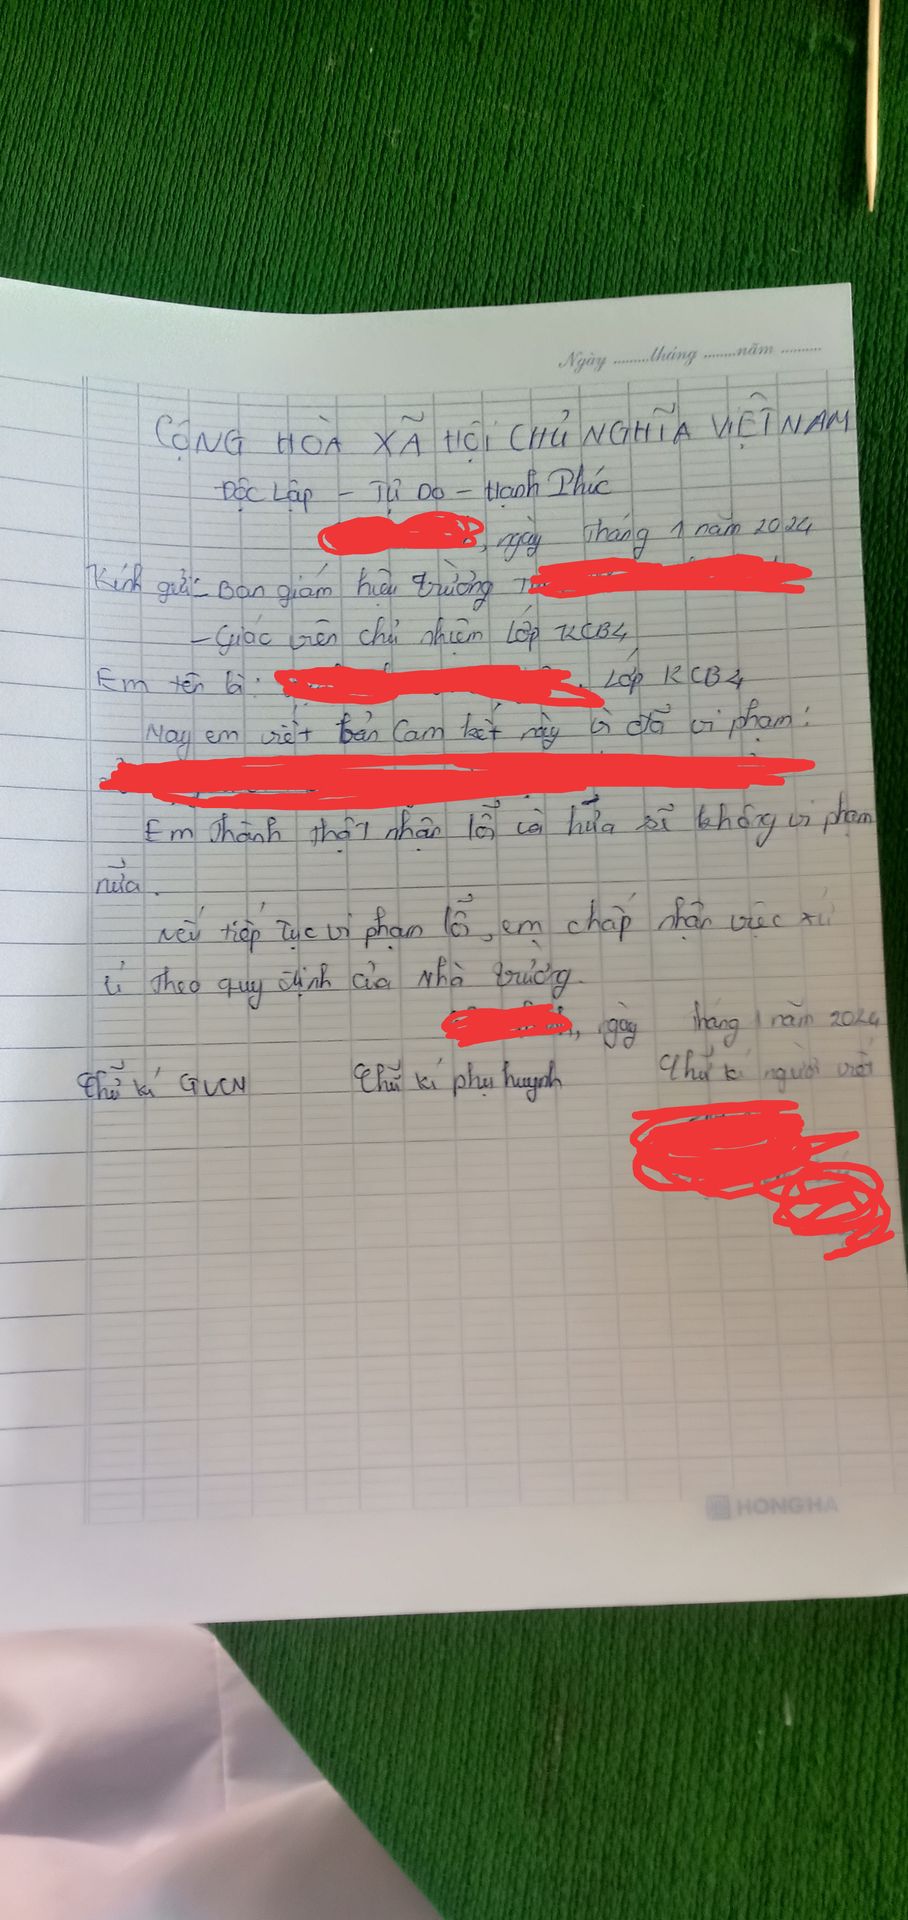 Ngày ........tháng ........năm ..........
CỘNG HÒA XÃ HỘI CHỦ NGHĨA VIỆT NAM
Độc Lập - Tự Do - Hạnh Phúc
, ngày tháng 1 năm 2024
Kính gửi - Ban giám hiệu trường
- Giáo viên chủ nhiệm lớp KCB4
Em tên là: Lớp KCB4
Nay em viết bản cam kết này vì đã vi phạm:
Em thành thật nhận lỗi và hứa sẽ không vi phạm
nữa.
Nếu tiếp tục vi phạm lỗi, em chấp nhận việc xử
lí theo quy định của nhà trường.
, ngày tháng 1 năm 2024
Chữ kí GVCN Chữ kí phụ huynh Chữ kí người viết
HONG HA